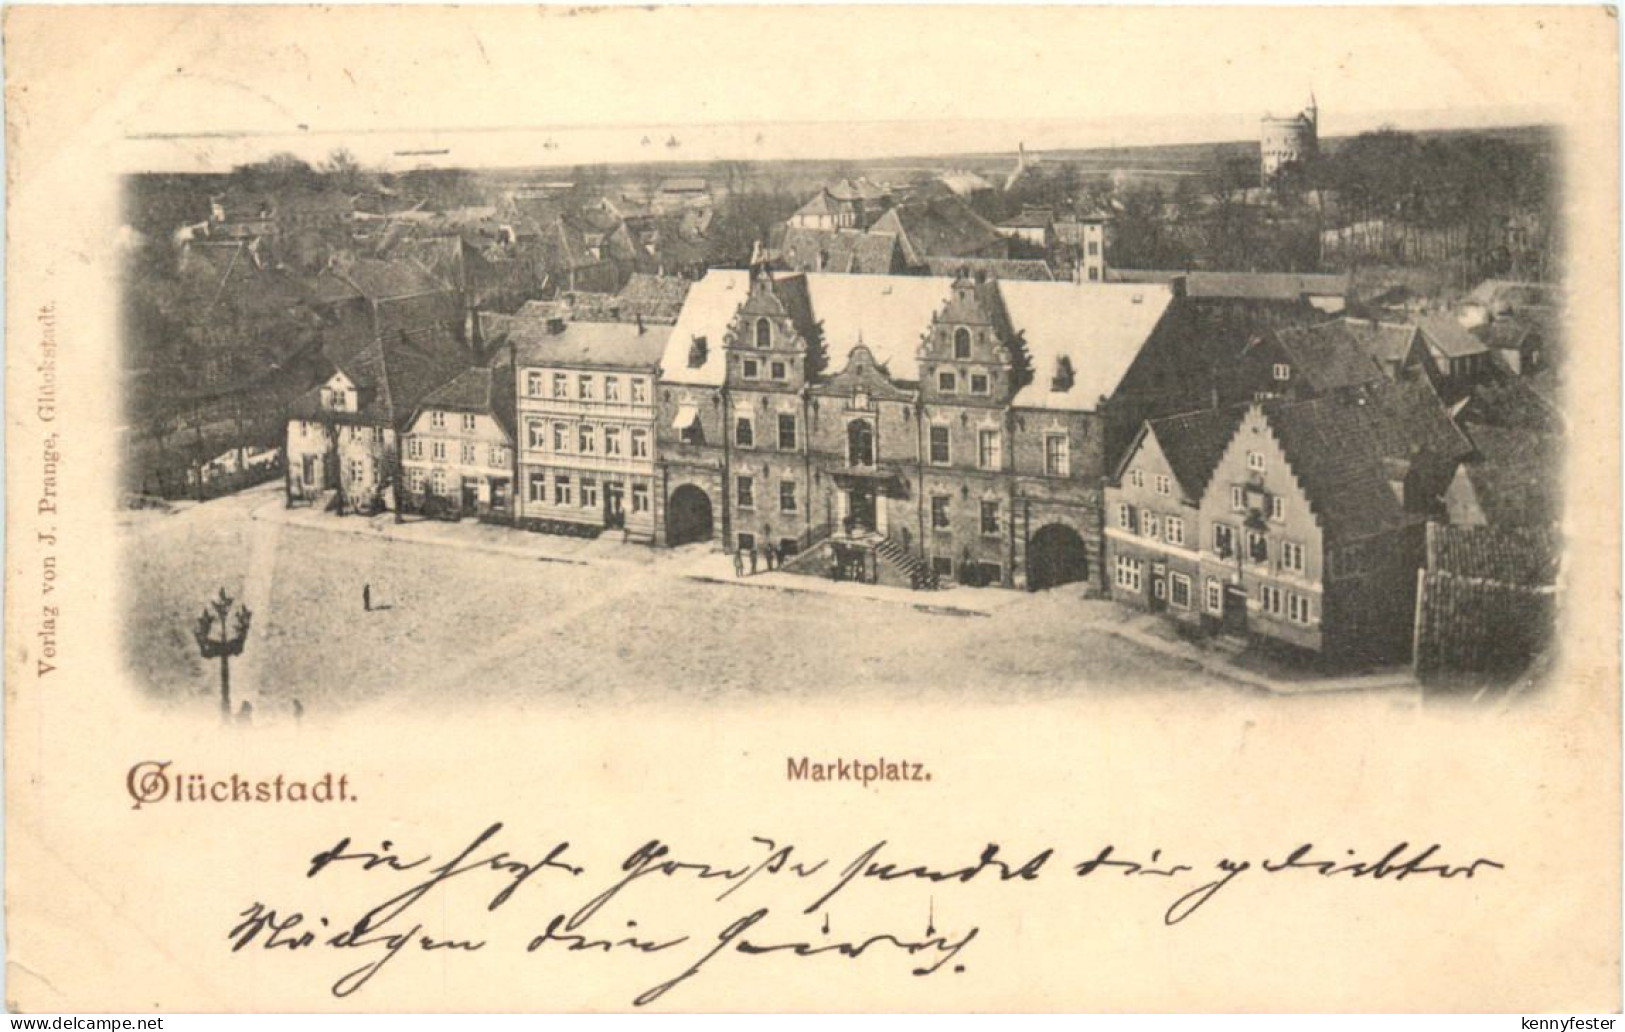 Verlag von J. Prange, Glückstadt.
Glückstadt.
Marktplatz.
die Grüße sendet dir geliebter
dein Heinrich.
www.delcampe.net
kennyfester